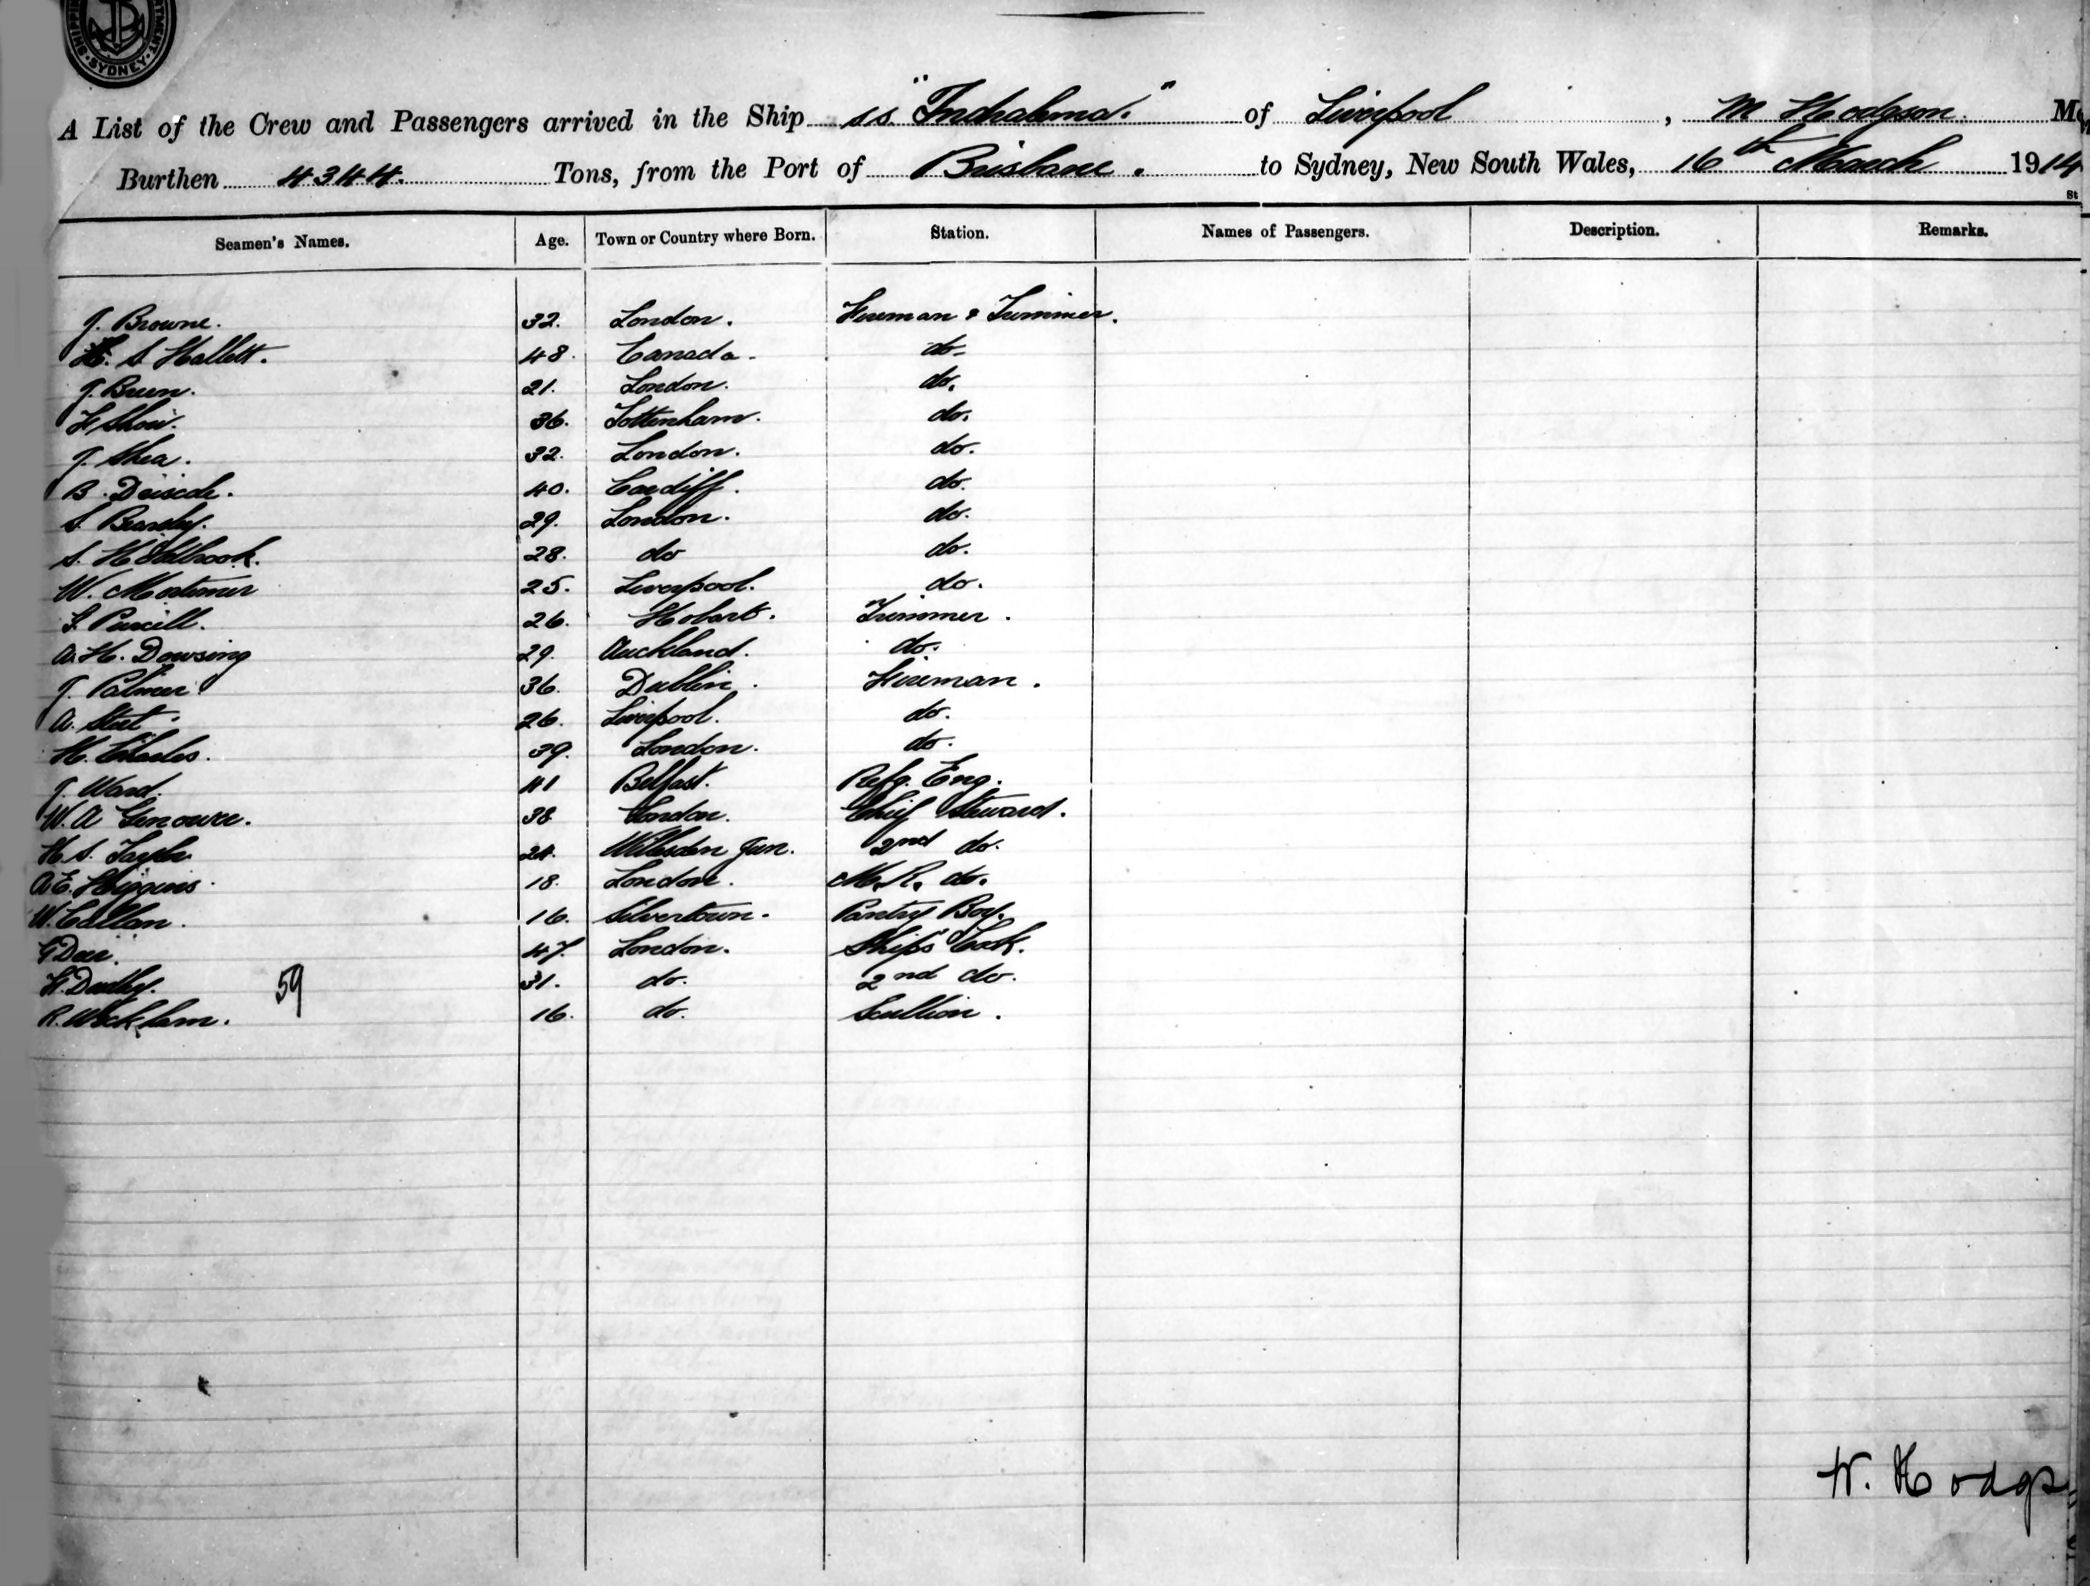 SHIPPIN RTMENT SYDNEY
A List of the Crew and Passengers arrived in the Ship s.s. "Indralema." of Liverpool, M Hodgson
Burthen 4344. Tons, from the Port of Brisbane. to Sydney, New South Wales, 16th March 1914
Seamen's Names. Age. Town or Country where Born. Station. Names of Passengers. Description. Remarks.
J. Browne. 32. London. Fireman & Trimmer.
S. Hallett. 48. Canada. do.
J. Breen. 21. London. do.
36. Tottenham. do.
J. Shea. 32. London. do.
B. Driscole. 40. Cardiff. do.
S. 29. London. do.
S. Holbrook. 28. do do.
W. Mortimer 25. Liverpool. do.
Purcell. 26. Hobart. Trimmer.
A. H. Dowsing 29. Auckland. do.
J. Palmer 36. Dublin. Fireman.
A. 26. Liverpool. do.
H. Charles. 39. London. do.
J. Ward. 41 Belfast. Refg. Eng.
W. A Genower. 38 London. Chief Steward.
H. S. Taylor 24. Willesden Jun. 2nd do.
A. E. Higgins. 18. London. M. R. do.
W. Callan. 16. Silvertown. Pantry Boy.
G 47. London. Ship's Cook.
59 31. do. 2nd do.
R. Wickham. 16. do. Scullion.
W. Hodgs